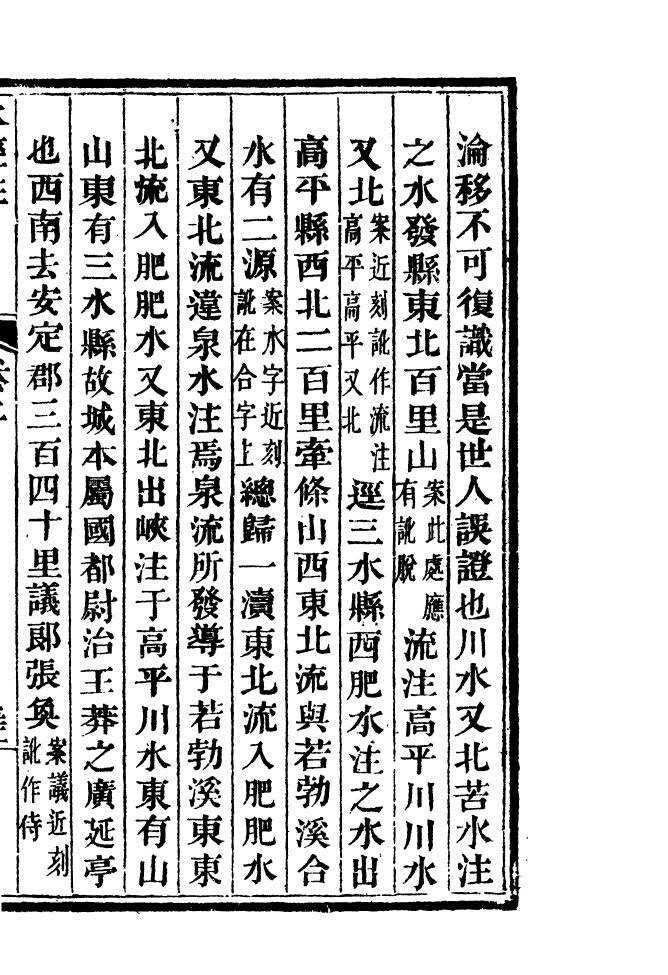 淪移不可復識當是世人誤證也川水又北苦水注
之水發縣東北百里山案此處應有訛脫流注高平川川水
又北案近刻訛作流注高平高平又北逕三水縣西肥水注之水出
高平縣西北二百里牽條山西東北流與若勃溪合
水有二源案水字近刻訛在合字上總歸一瀆東北流入肥肥水
又東北流違泉水注焉泉流所發導于若勃溪東東
北流入肥肥水又東北出峽注于高平川水東有山
山東有三水縣故城本屬國都尉治王莽之廣延亭
也西南去安定郡三百四十里議郎張奐案議近刻訛作侍